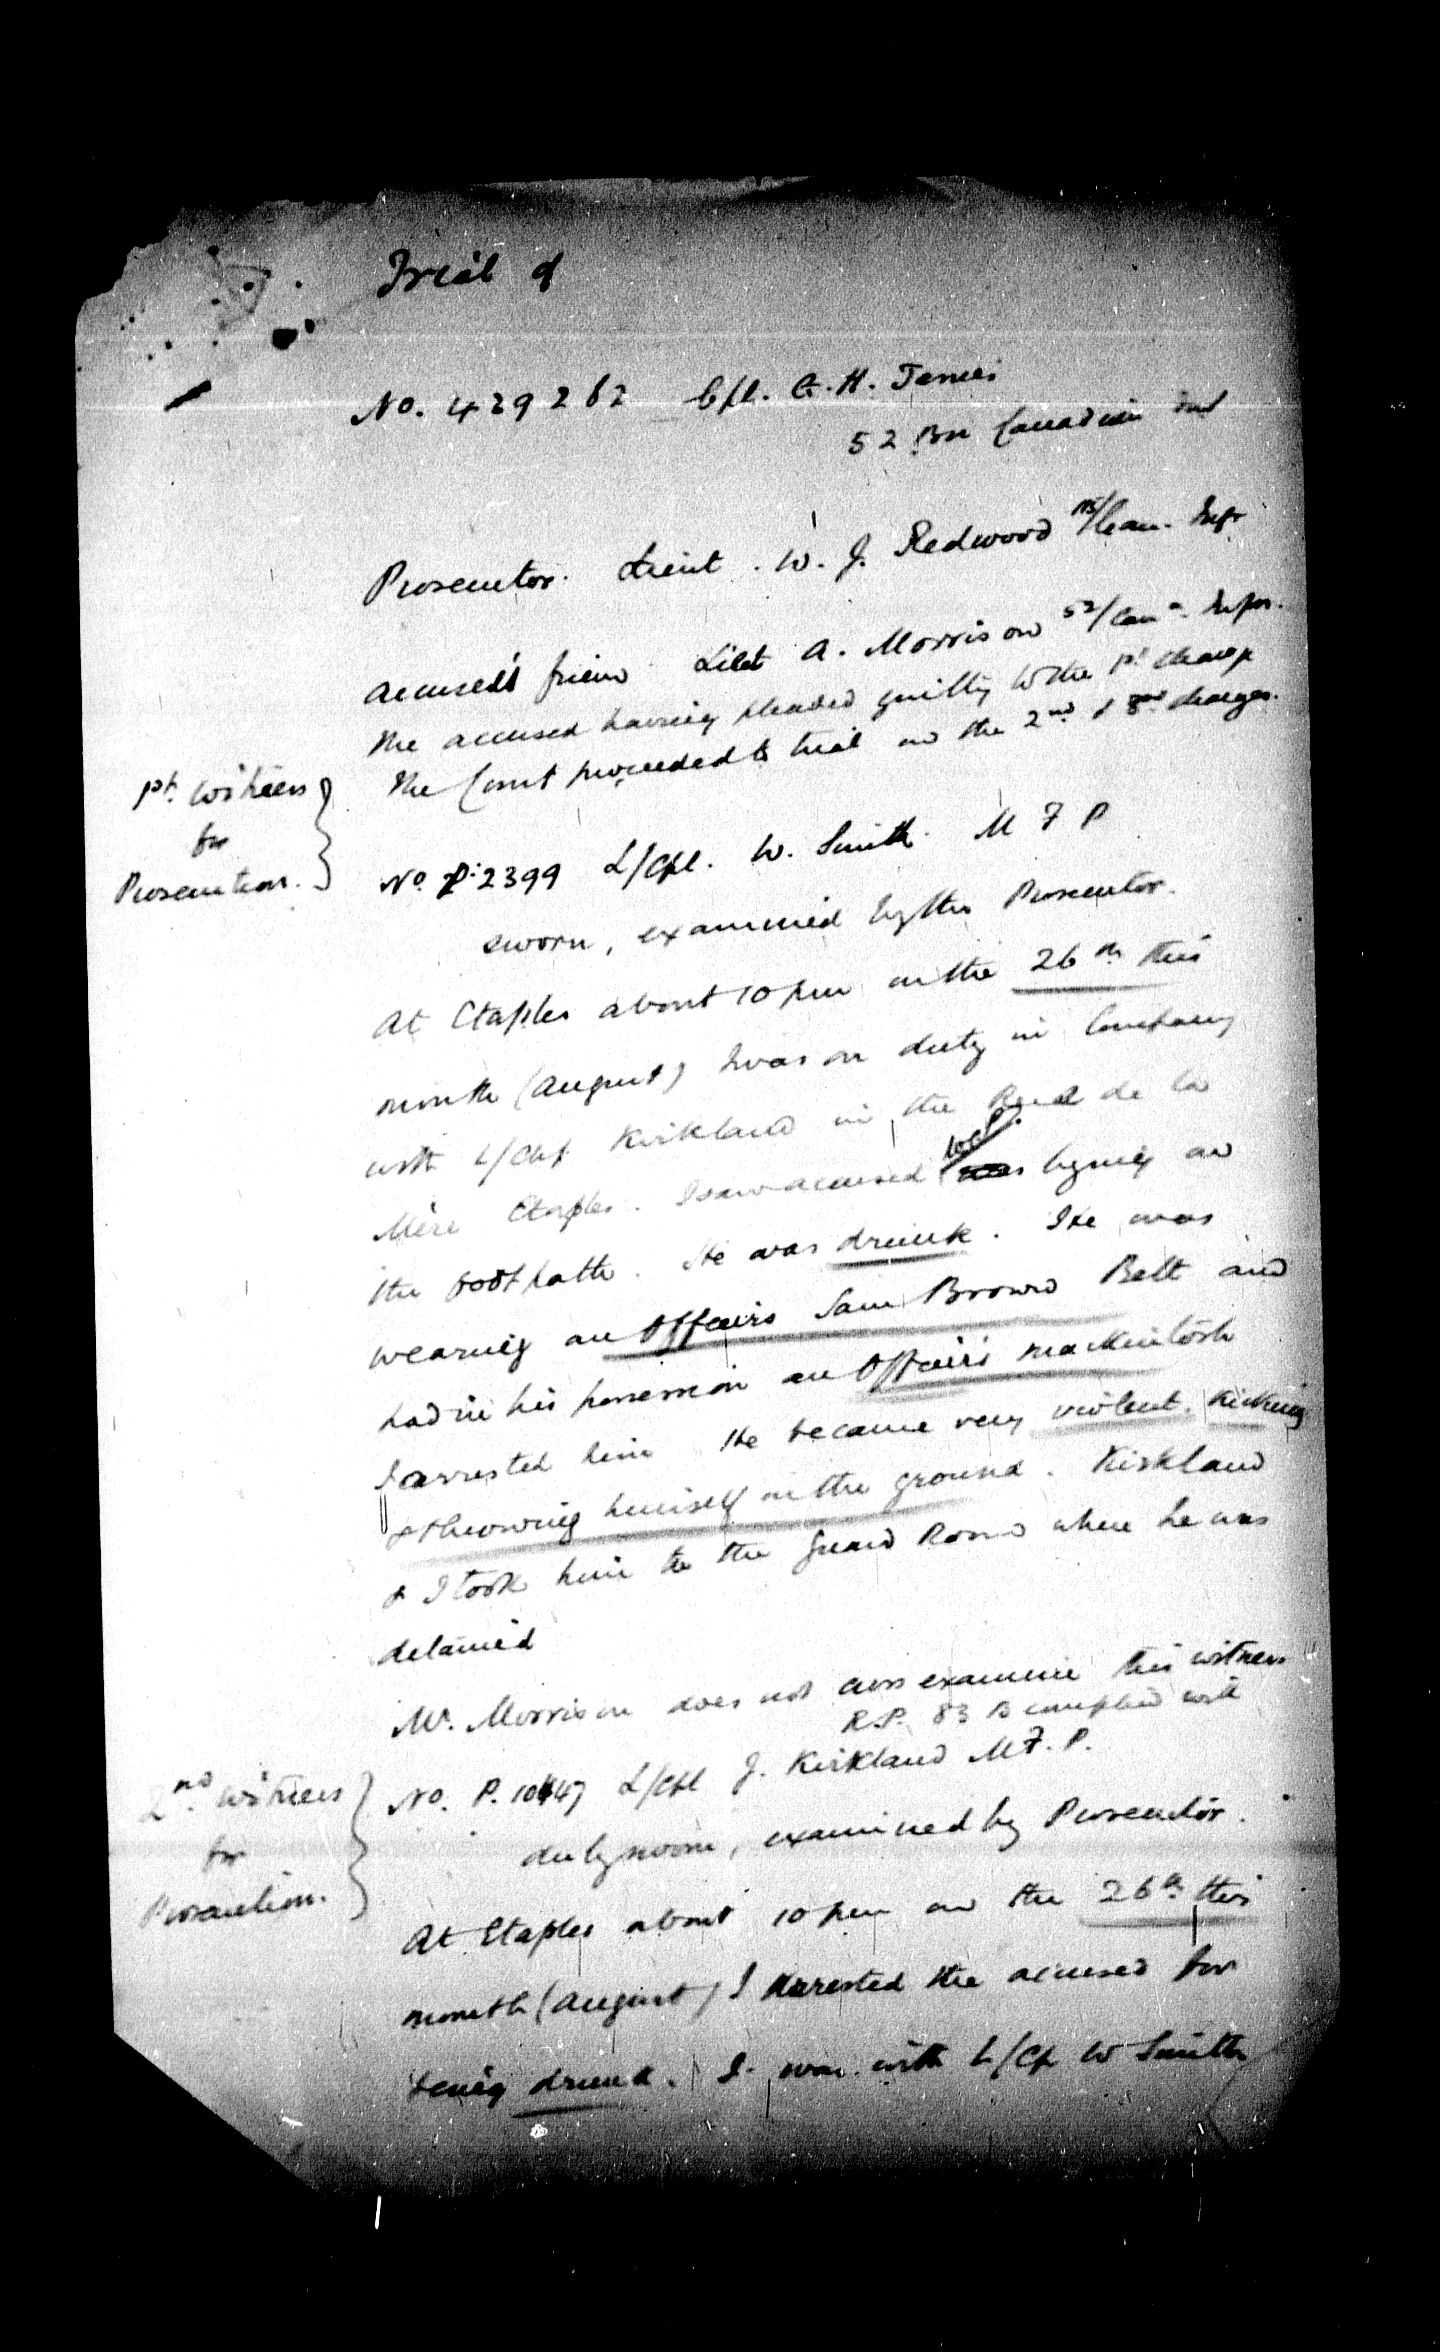 Trial of
No. 429262 Cpl. G. H.
52 Bn Canadian Inf
Prosecutor. Lieut. W. J. Redwood Can. Inf
Accused's friend Lieut A. Morrison 52/Can. Infn.
The accused having pleaded guilty to the 1st charge
The Court proceeded to trial on the 2nd & 3rd charges.
1st witness
for
Prosecution.
No. P. 2399 L/Cpl. W. Smith. M F P
sworn, examined by the Prosecutor.
At Etaples about 10 pm on the 26th this
month (August) I was on duty in Company
with L/Cpl Kirkland in the Rue de la
Mère Etaples. I saw accused lying on
the footpath. He was drunk. He was
wearing an Officers Sam Brown Belt and
had in his possession an Officers mackintosh
I arrested him He became very violent, kicking
& throwing himself on the ground. Kirkland
& I took him to the Guard Room where he was
detained
Mr. Morrison does not cross examine this witness
R.P. 83 B complied with
2nd witness
for
Prosecution.
No. P. 10447 L/Cpl J. Kirkland M.F.P.
duly sworn, examined by Prosecutor.
At Etaples about 10 pm on the 26th this
month (August) I arrested the accused for
being drunk. I was with L/Cp W Smith